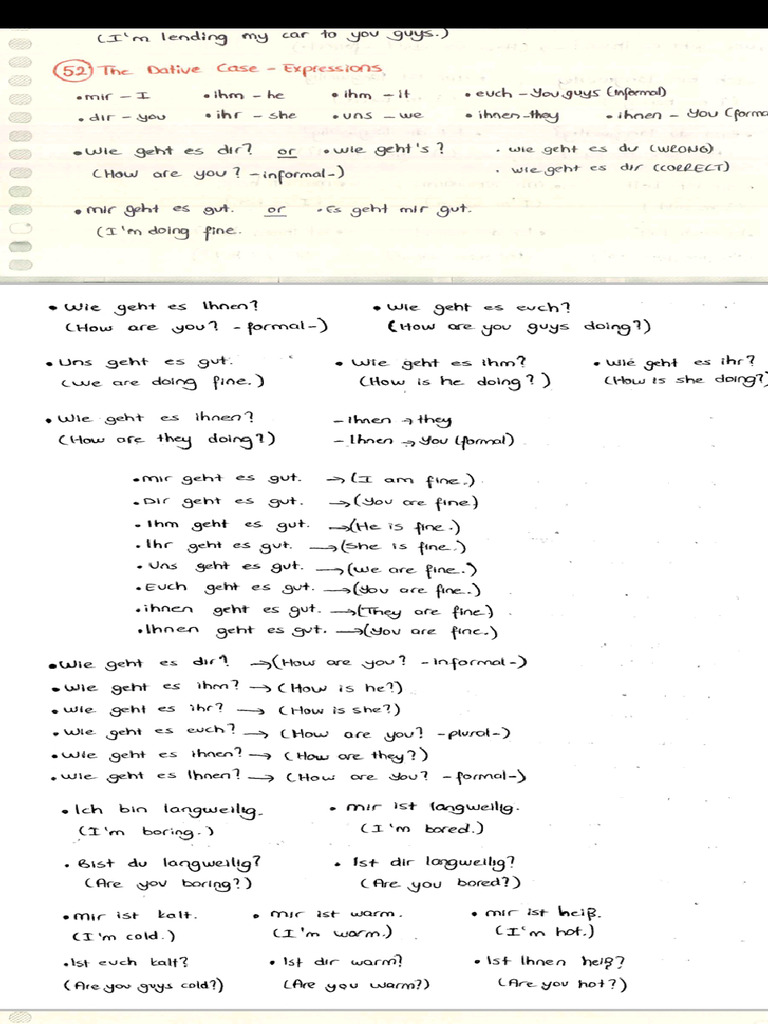 (I'm lending my car to you guys.)
52 The Dative Case - Expressions
• mir - I • ihm - he • ihm - it • euch - You guys (informal)
• dir - you • ihr - she • uns - we • ihnen - they • ihnen - You (forma
• Wie geht es dir? or • Wie geht's? • wie geht es du (WRONG)
(How are you? - informal -) • wie geht es dir (CORRECT)
• Mir geht es gut. or • Es geht mir gut.
(I'm doing fine.
• Wie geht es Ihnen? • Wie geht es euch?
(How are you? - formal -) (How are you guys doing?)
• Uns geht es gut. • Wie geht es ihm? • Wie geht es ihr?
(We are doing fine.) (How is he doing?) (How is she doing?)
• Wie geht es ihnen? - ihnen → they
(How are they doing?) - Ihnen → You (formal)
• Mir geht es gut. → (I am fine.)
• Dir geht es gut. → (You are fine)
• Ihm geht es gut. → (He is fine.)
• Ihr geht es gut. → (She is fine.)
• Uns geht es gut. → (We are fine.)
• Euch geht es gut. → (You are fine.)
• ihnen geht es gut. → (They are fine)
• Ihnen geht es gut. → (You are fine.)
• Wie geht es dir? → (How are you? - informal -)
• Wie geht es ihm? → (How is he?)
• Wie geht es ihr? → (How is she?)
• Wie geht es euch? → (How are you? - plural -)
• Wie geht es ihnen? → (How are they?)
• Wie geht es Ihnen? → (How are You? - formal -)
• Ich bin langweilig. • Mir ist langweilig.
(I'm boring.) (I'm bored.)
• Bist du langweilig? • Ist dir langweilig?
(Are you boring?) (Are you bored?)
• Mir ist kalt. • Mir ist warm. • Mir ist heiß.
(I'm cold.) (I'm warm.) (I'm hot.)
• Ist euch kalt? • Ist dir warm? • Ist Ihnen heiß?
(Are you guys cold?) (Are you warm?) (Are you hot?)